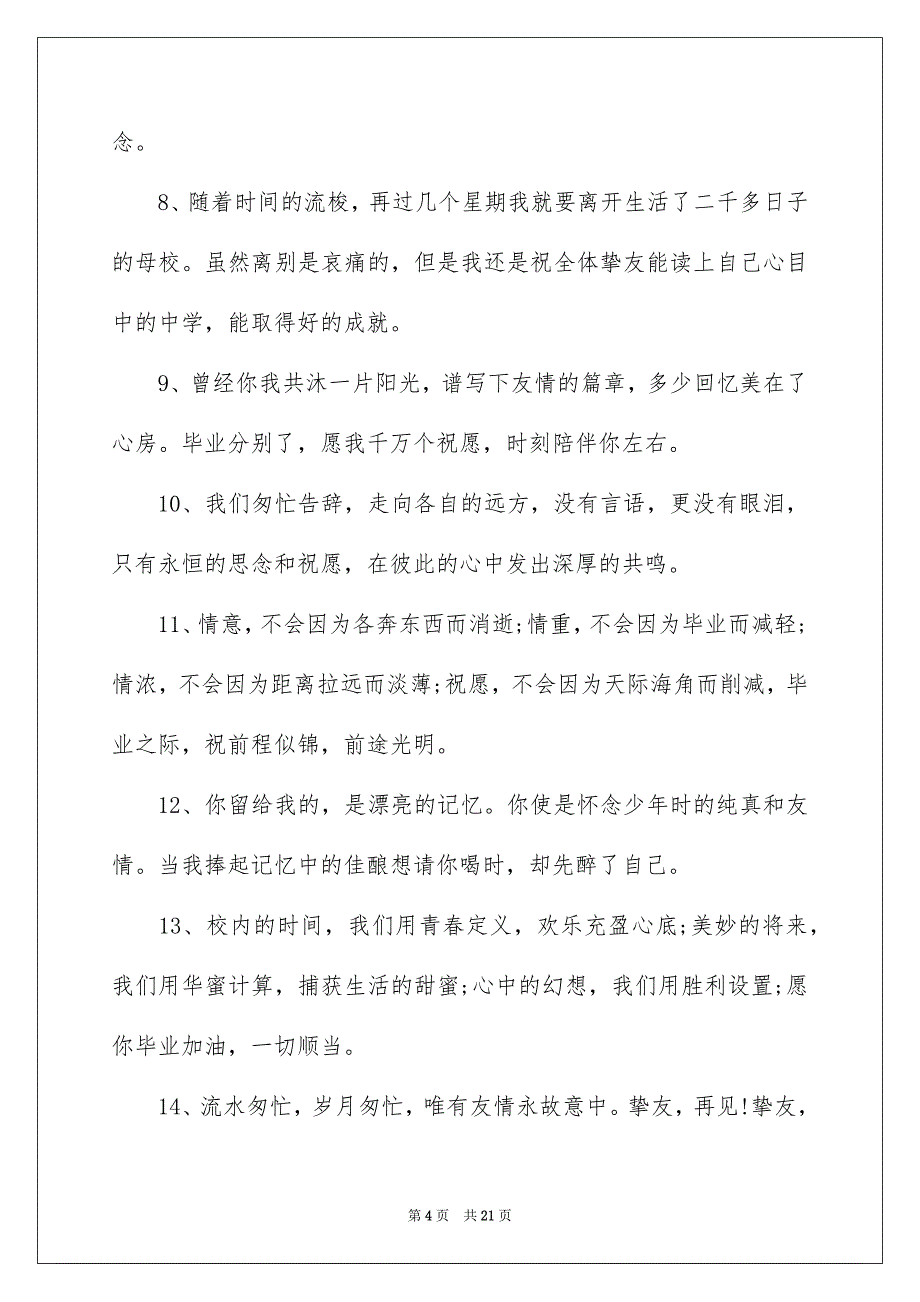 念。
8、随着时间的流梭，再过几个星期我就要离开生活了二千多日子
的母校。虽然离别是哀痛的，但是我还是祝全体挚友能读上自己心目
中的中学，能取得好的成就。
9、曾经你我共沐一片阳光，谱写下友情的篇章，多少回忆美在了
心房。毕业分别了，愿我千万个祝愿，时刻陪伴你左右。
10、我们匆忙告辞，走向各自的远方，没有言语，更没有眼泪，
只有永恒的思念和祝愿，在彼此的心中发出深厚的共鸣。
11、情意，不会因为各奔东西而消逝;情重，不会因为毕业而减轻;
情浓，不会因为距离拉远而淡薄;祝愿，不会因为天际海角而削减，毕
业之际，祝前程似锦，前途光明。
12、你留给我的，是漂亮的记忆。你使是怀念少年时的纯真和友
情。当我捧起记忆中的佳酿想请你喝时，却先醉了自己。
13、校内的时间，我们用青春定义，欢乐充盈心底;美妙的将来，
我们用华蜜计算，捕获生活的甜蜜;心中的幻想，我们用胜利设置;愿
你毕业加油，一切顺当。
14、流水匆忙，岁月匆忙，唯有友情永故意中。挚友，再见!挚友，
第 4 页 共 21 页